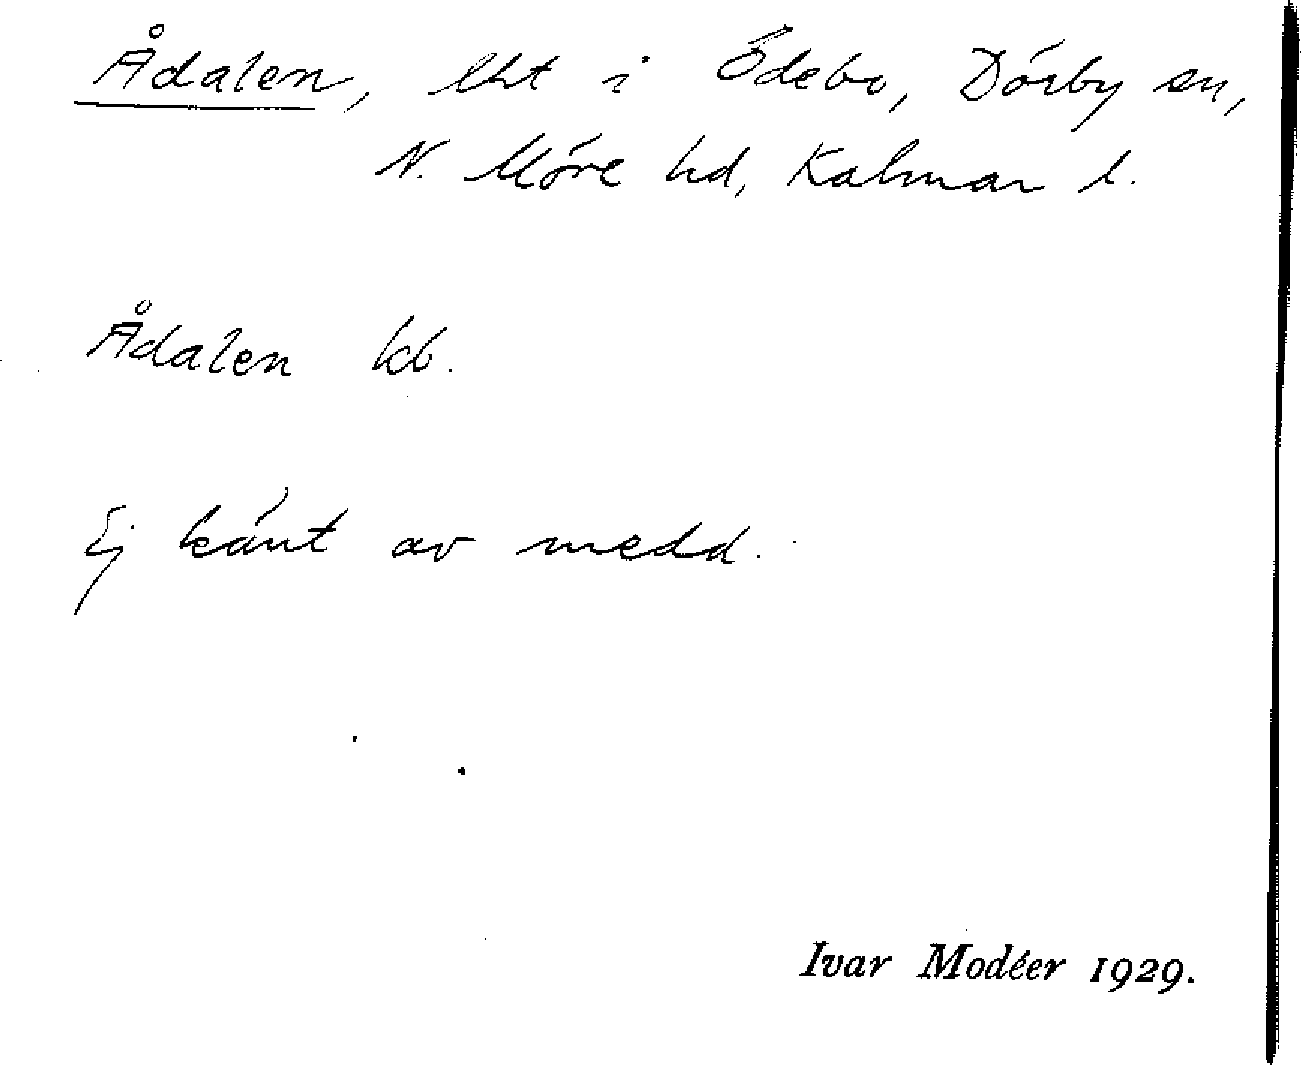 Ådalen, lht i Ödebo, Dörby sn,
N. Möre hd, Kalmar l.
Ådalen kb.
Ej känt av medd.
Ivar Modéer 1929.